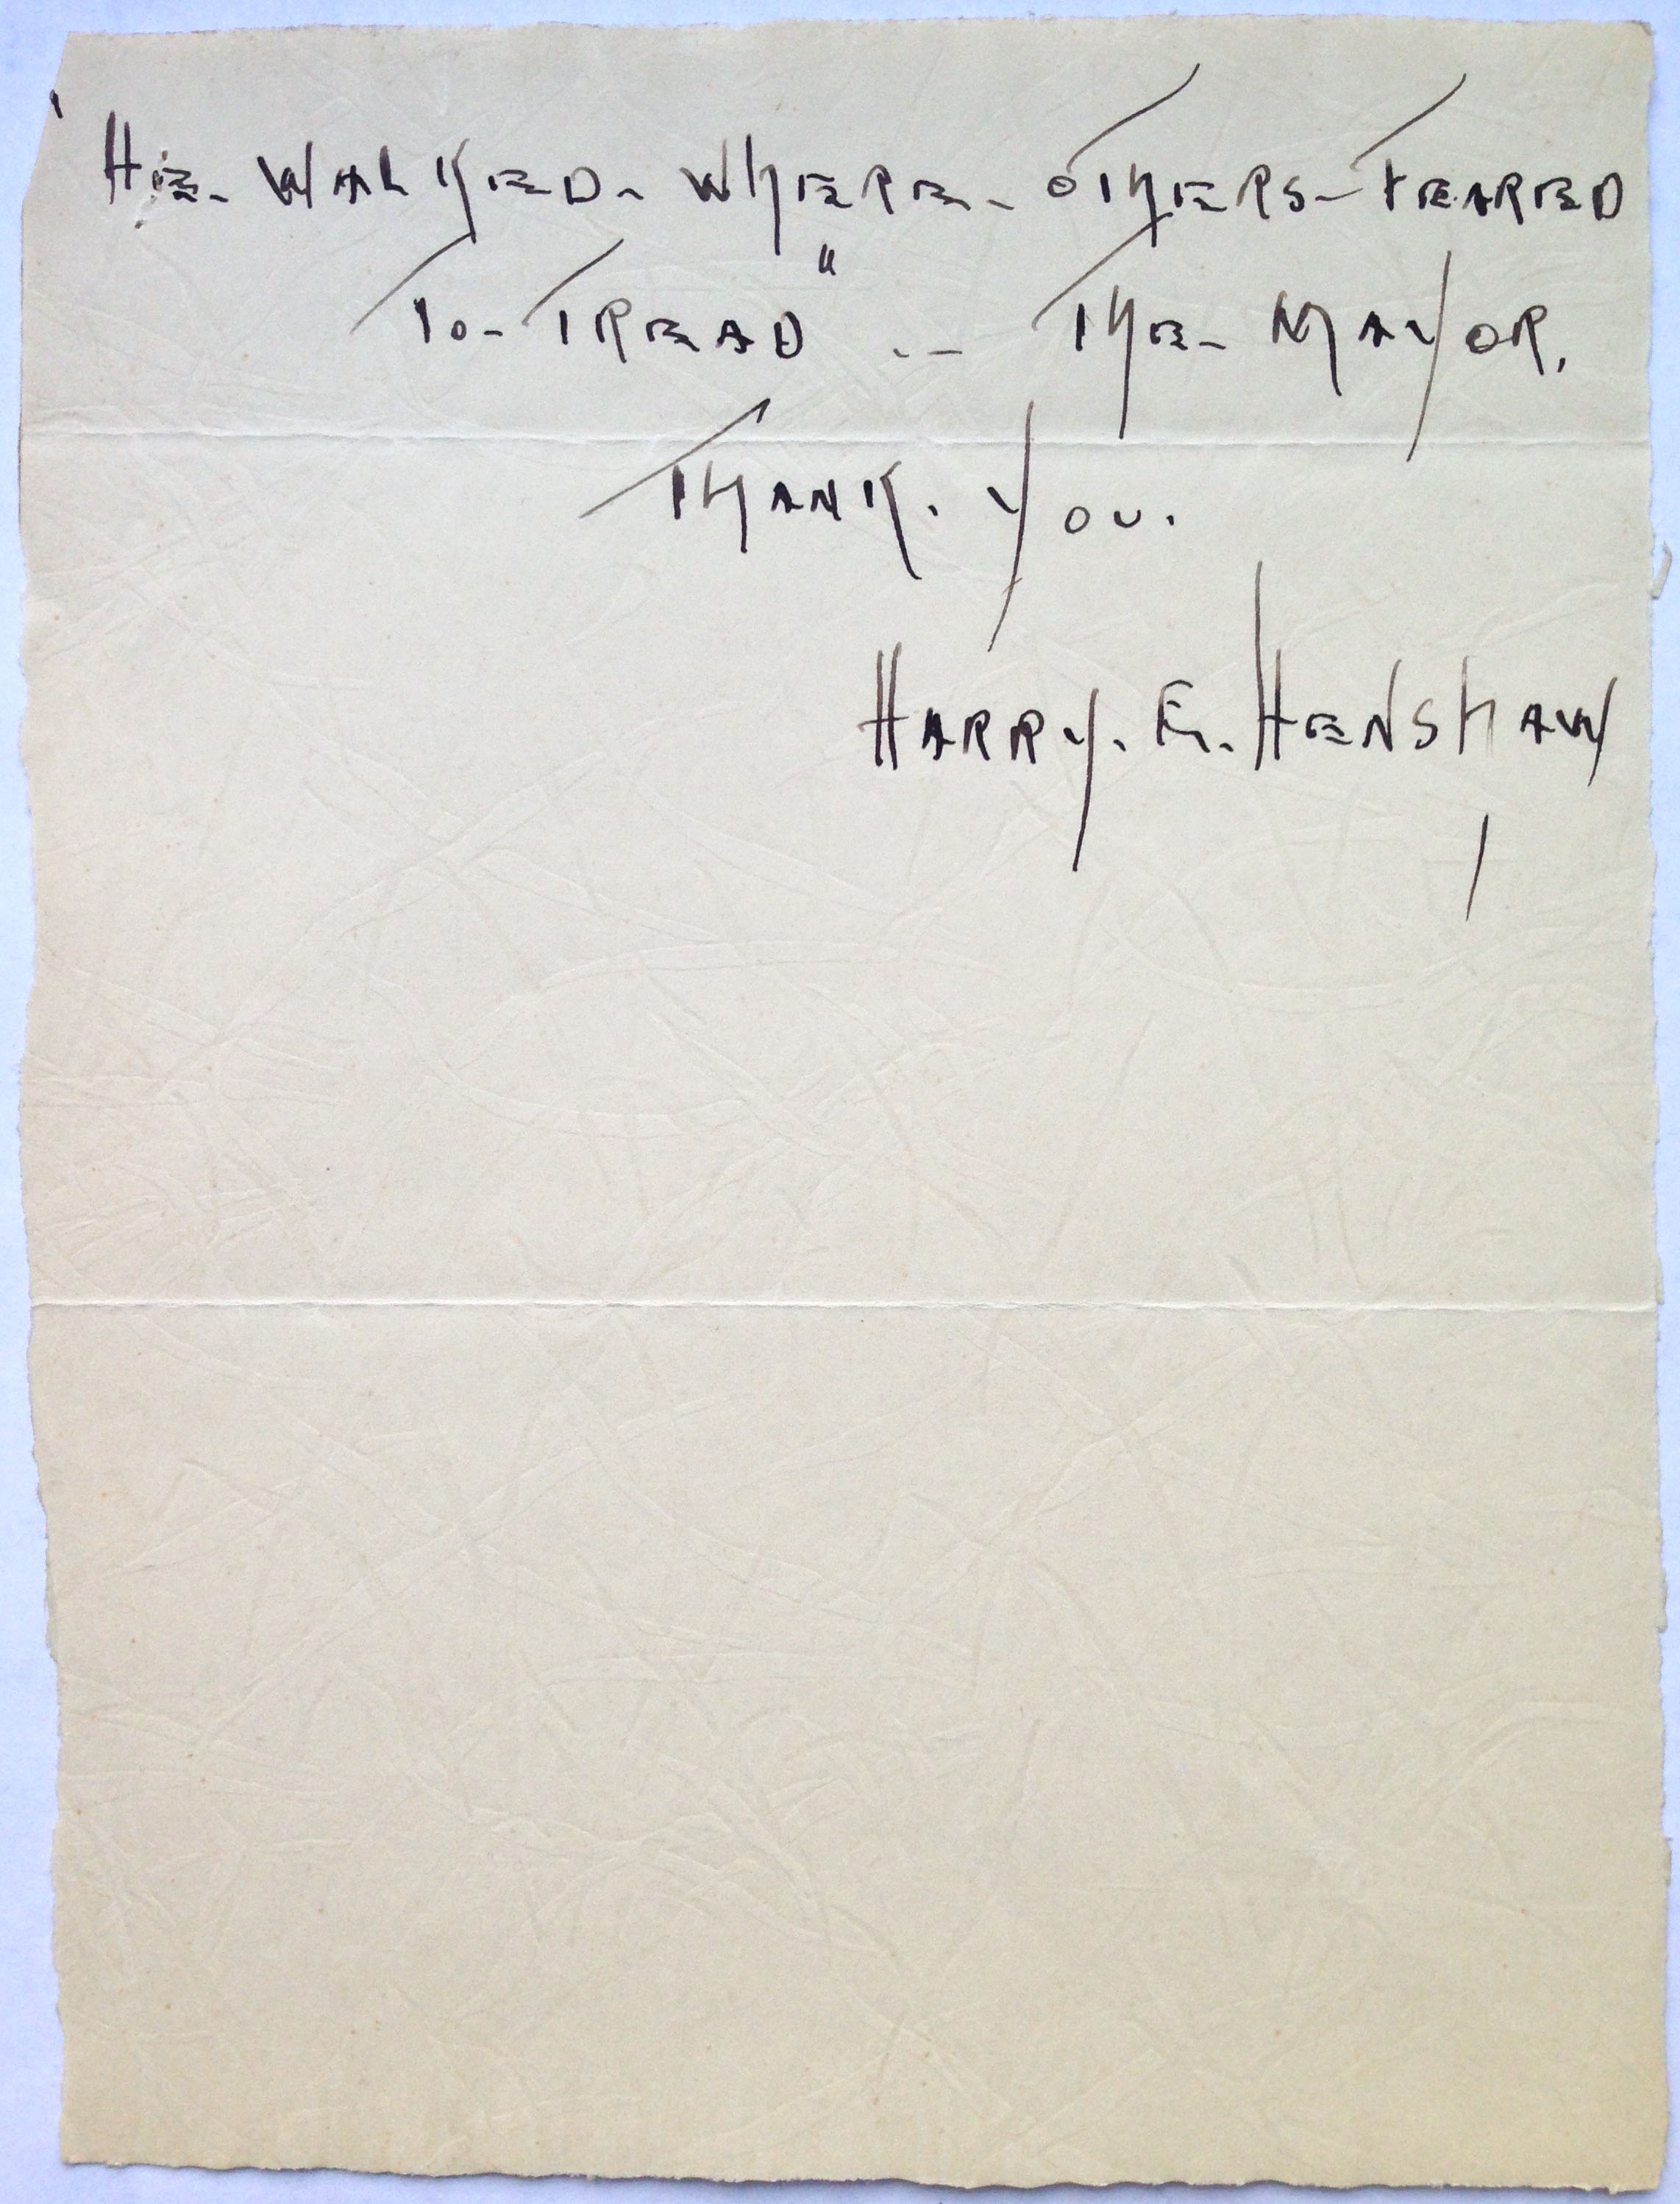 ' HE- WALKED- WHERE- OTHERS- FEARED
TO- TREAD" -- THE- MAYOR.
THANK. YOU.
HARRY. E. HENSHAW